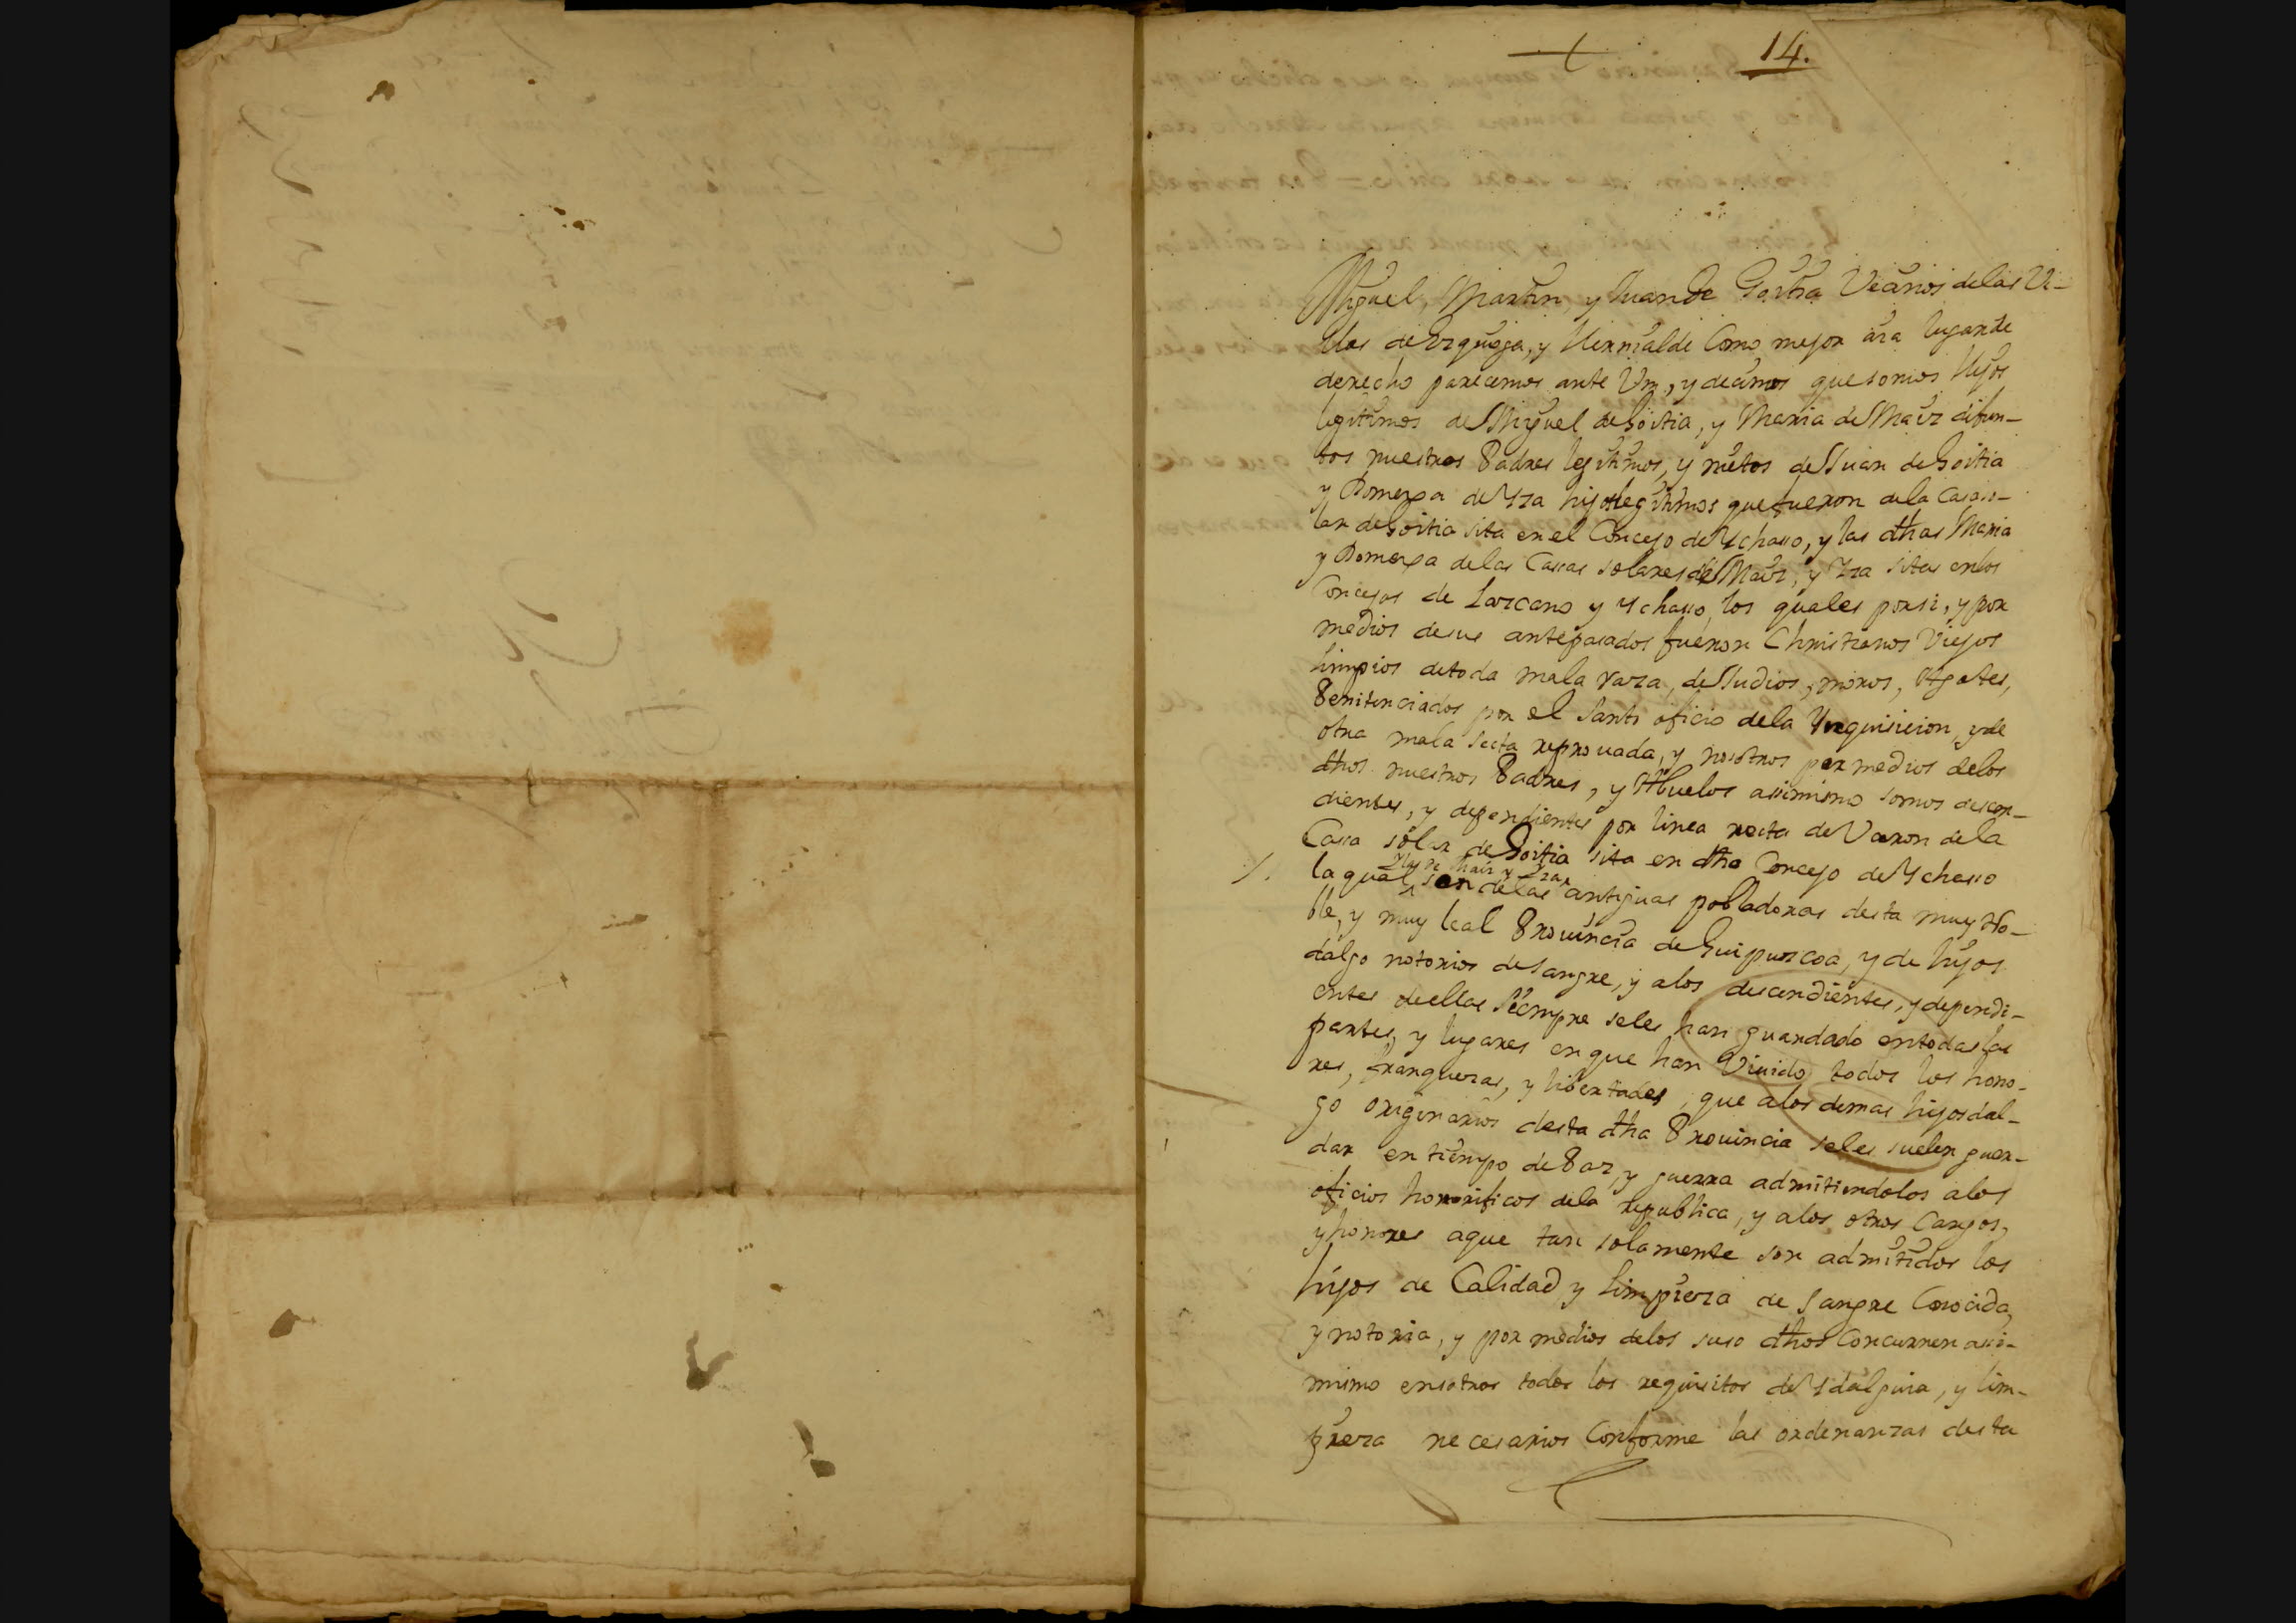 14.
Miguel, Martin, y Juan de Goitia Vecinos de las Vi-
llas de Ezquioja, y Hernialde Como mejor aia lugar de
derecho parecemos ante Vm, y decimos que somos Hijos
legitimos de Miguel de Goitia, y Maria de Maiz difun-
tos nuestros Padres legitimos, y nietos de Juan de Goitia
y Domenxa de Yza hijos legitimos que fueron dela Casa so-
lar de Goitia sita en el Concejo de Ychasso, y las dhas Maria
y Domenxa de las Casas solares de Maiz, y Yza sitas en los
Concejos de Lazcano y Ychasso, los quales por si, y por
medios de sus antepasados fueron Christianos Viejos
limpios de toda mala raza, de Judios, moros, Agotes,
Penitenciados por el Santo oficio dela Ynquisicion, y de
otra mala secta reprouada, y nosotros por medios delos
dhos nuestros Padres, y Abuelos assimismo somos descen-
dientes, y dependientes por linea recta de Varon de la
Casa solar de Goitia sita en dho Concejo de Ychasso
la qual y las de Maiz y Yza son delas antiguas pobladoras desta muy No-
ble, y muy leal Prouincia de Guipuzcoa, y de hijos
dalgo notorios de sangre, y alos descendientes, y dependi-
entes de ellas Siempre seles han guardado en todas las
partes, y lugares en que han Viuido todos los hono-
res, franquezas, y libertades, que alos demas hijosdal-
go originarios desta dha Prouincia seles suelen guar-
dar en tiempo de Paz, y guerra admitiendolos alos
oficios honorificos dela republica, y alos otros Cargos,
y honores aque tan solamente son admitidos los
hijos de Calidad y limpieza de sangre Conocida,
y notoria, y por medios delos suso dhos Concurren assi-
mismo en nosotros todos los requisitos de Ydalguia, y lim-
pieza necesarios Conforme las ordenanzas desta